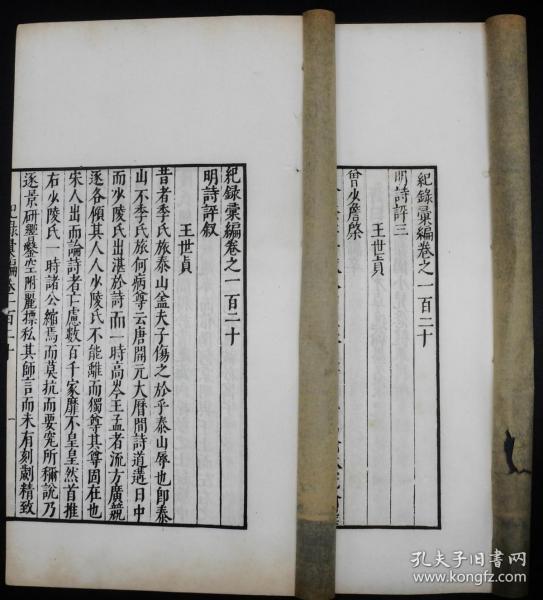 紀録彙編卷之一百二十
明詩評三
王世貞
曾少詹棨
紀録彙編卷之一百二十
明詩評叙
王世貞
昔者季氏旅泰山盖夫子傷之於乎泰山辱也即泰
山不季氏旅何病尊云唐開元大曆間詩道遘日中
而少陵氏出湛於詩而一時高岑王孟者流方廣競
逐各傾其人人少陵氏不能離而獨尊其尊固在也
宋人出而論詩者亡慮數百千家靡不皇皇然首推
右少陵氏一時諸公縮焉而莫抗而要究所稱說乃
逐景研響鑿空附麗摽私其師言而未有刻劌精致
紀録彙編卷一百二十 一
孔夫子旧书网
www.kongfz.com